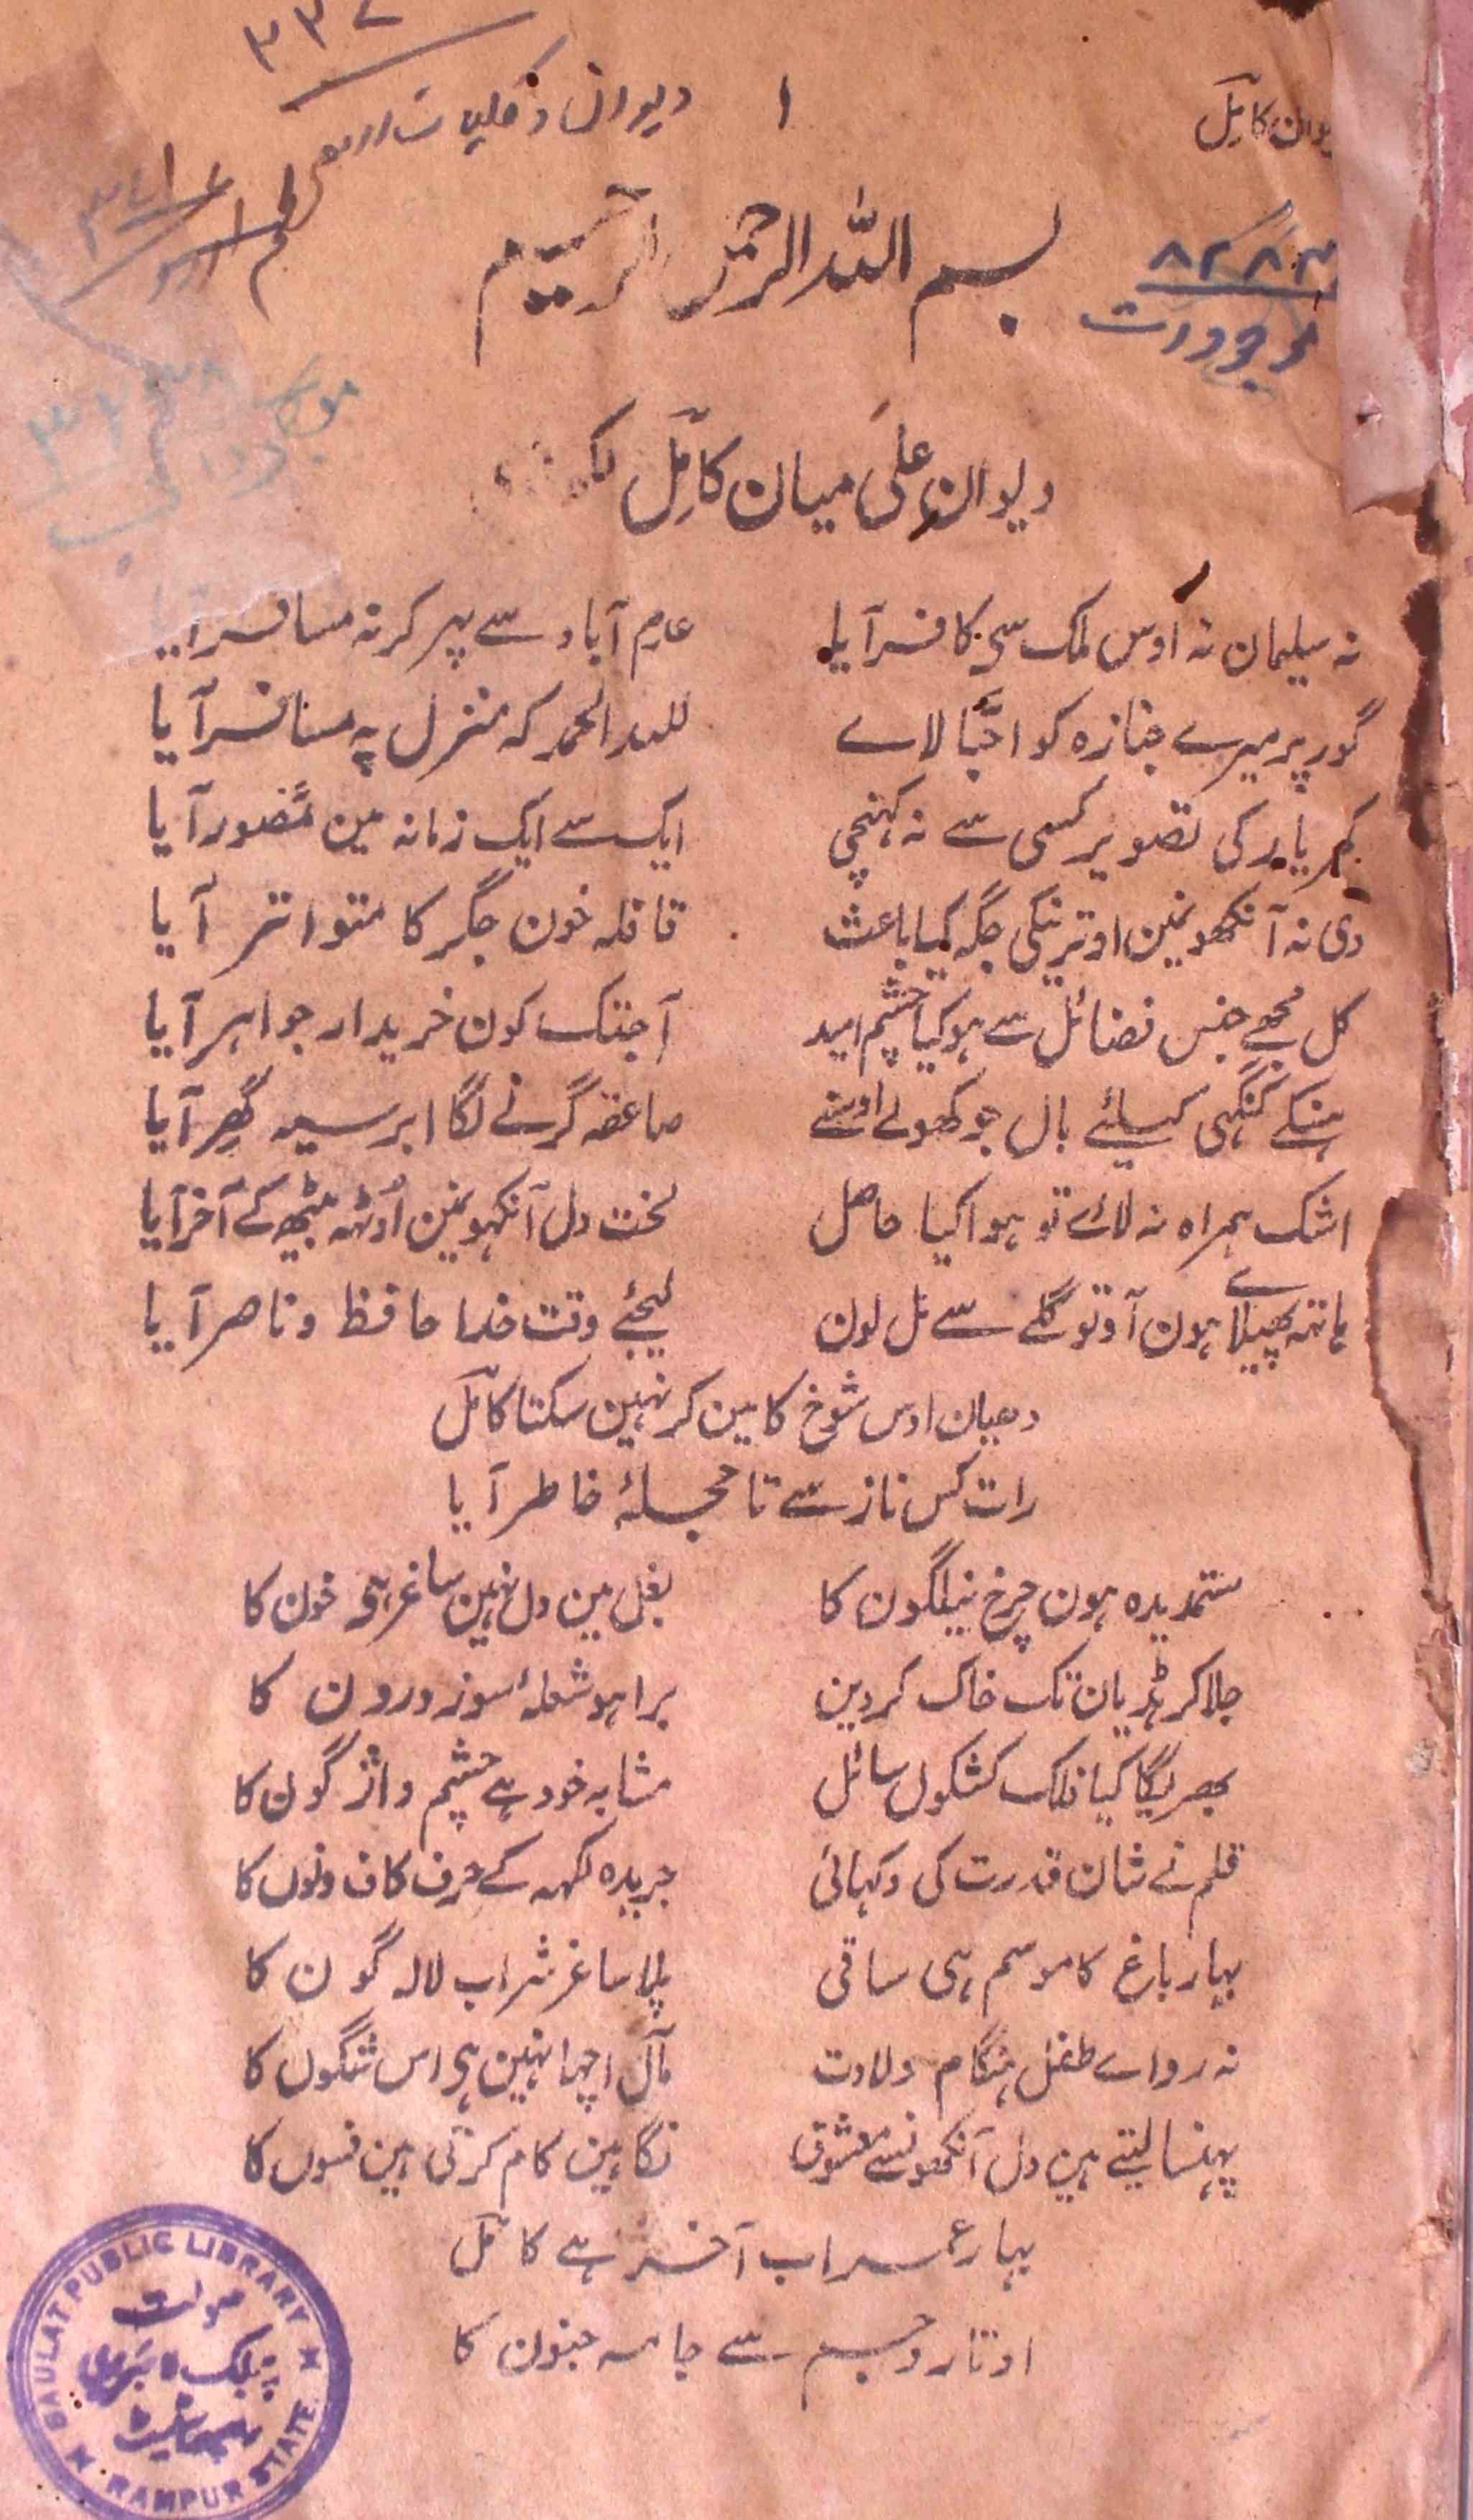 دیوان کامل
۱
بسم اللہ الرحمن الرحیم
دیوان علی میان کامل
نہ سلیمان نہ اوس ملک سی کافر آیا
عدم آباد سے پھر کر نہ مسافر آیا
گور پر میرے جنازہ کو احبّا لاے
للہ الحمد کہ منزل پہ مسافر آیا
کمر یار کی تصویر کسی سے نہ کہنچی
ایک سے ایک زمانہ مین مصور آیا
دی نہ آنکھونمین اوترنیکی جگہ کیا باعث
قافلہ خون جگر کا متواتر آیا
کل مجھے جنس فضائل سے ہو کیا چشم امید
آجتک کون خریدار جواہر آیا
ہنسکے کنگہی کیلئے بال جو کھولے اوسنے
صاعقہ گرنے لگا ابر سیہ گھر آیا
اشک ہمراہ نہ لاے تو ہوا کیا حاصل
لخت دل آنکہونمین اوٹہہ بیٹھ کے آخر آیا
ہاتہہ پھیلاے ہون آو تو گلے سے مل لون
لیجئے وقت خدا حافظ و ناصر آیا
دھیان اوس شوخ کا مین کر نہین سکتا کامل
رات کس ناز سے تا حجلۂ خاطر آیا
ستمدیدہ ہون چرخ نیلگون کا
بغل مین دل نہین ساغر ہی خون کا
جلا کر ہڈیان تک خاک کردین
برا ہو شعلۂ سوز درون کا
بھریگا کیا فلک کشکول سائل
مشابہ خود ہے چشم واژگون کا
قلم نے شان قدرت کی دکہائی
جریدہ لکہہ کے حرف کاف و نوں کا
بہار باغ کا موسم ہی ساقی
پلا ساغر شراب لالہ گون کا
نہ رو اے طفل ہنگام ولادت
مآل اچہا نہین ہی اس شگوں کا
پہنسا لیتے ہین دل آنکھونسے معشوق
نگاہین کام کرتی ہین فسوں کا
بہار عمر اب آخر ہے کامل
اوتارو جسم سے جامہ جنون کا
SAULAT PUBLIC LIBRARY
صولت
پبلک لائبریری
RAMPUR STATE